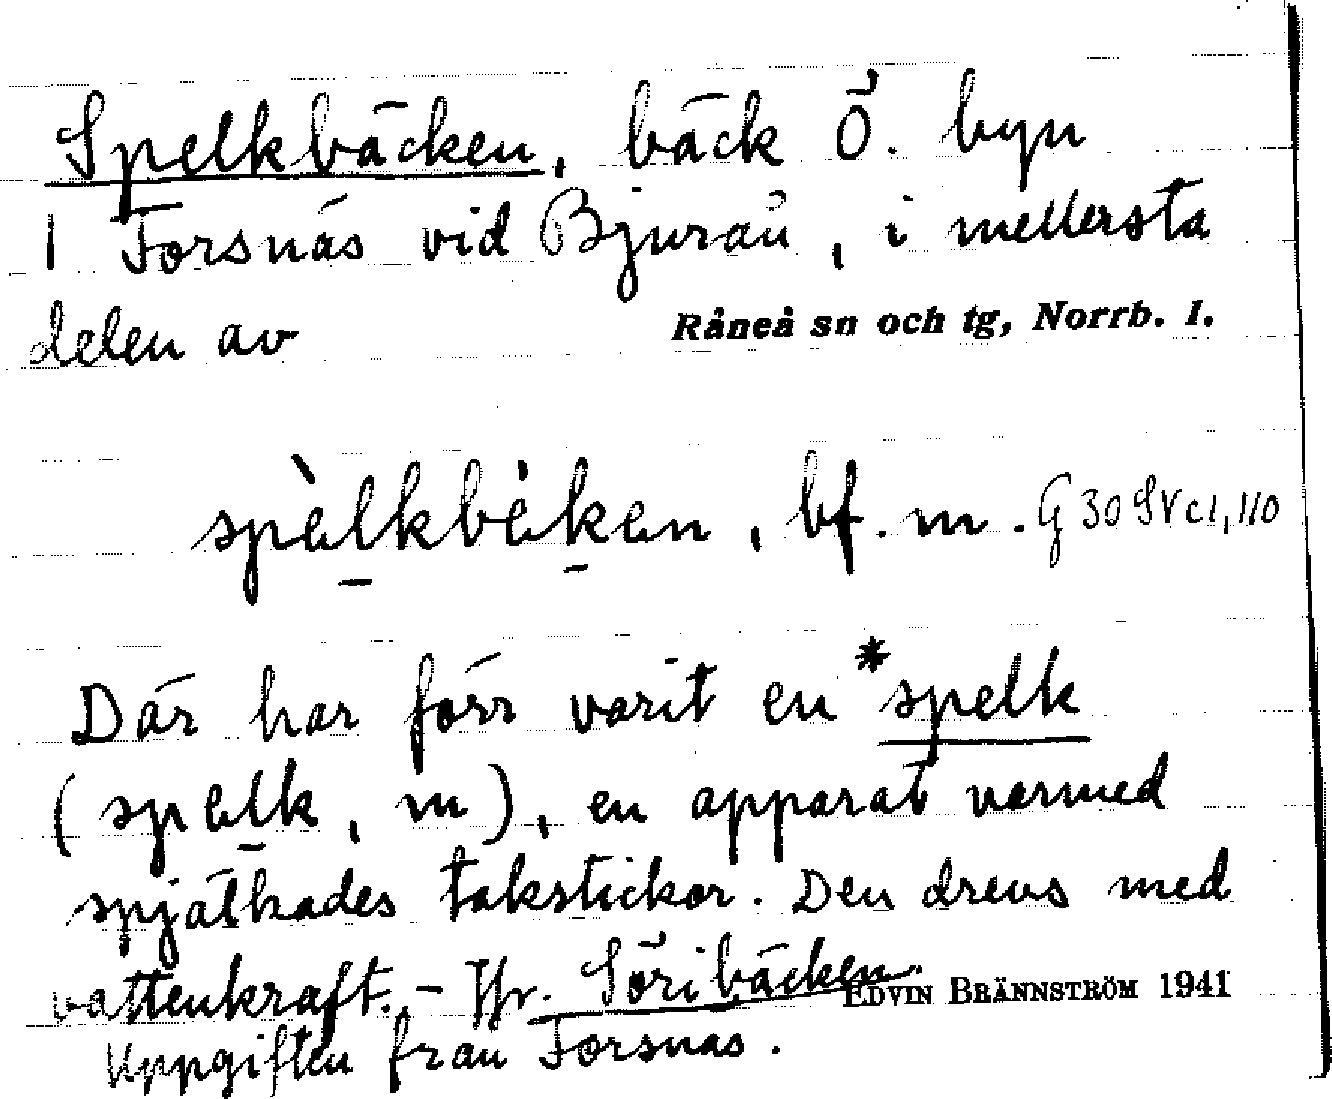 Spelkbäcken, bäck Ö. byn
1 Forsnäs vid Bjuraü, i mellersta
delen av
Råneå sn och tg, Norrb. l.
spèl̠kbèk̠en, bf. m. G 30 SV c1, 110
Där har förr varit en *spelk
(spel̠k, m), en apparat varmed
spjälkades takstickor. Den drevs med
vattenkraft. – Jfr. Söribäcken.
EDVIN BRÄNNSTRÖM 1941
Uppgiften från Forsnäs.